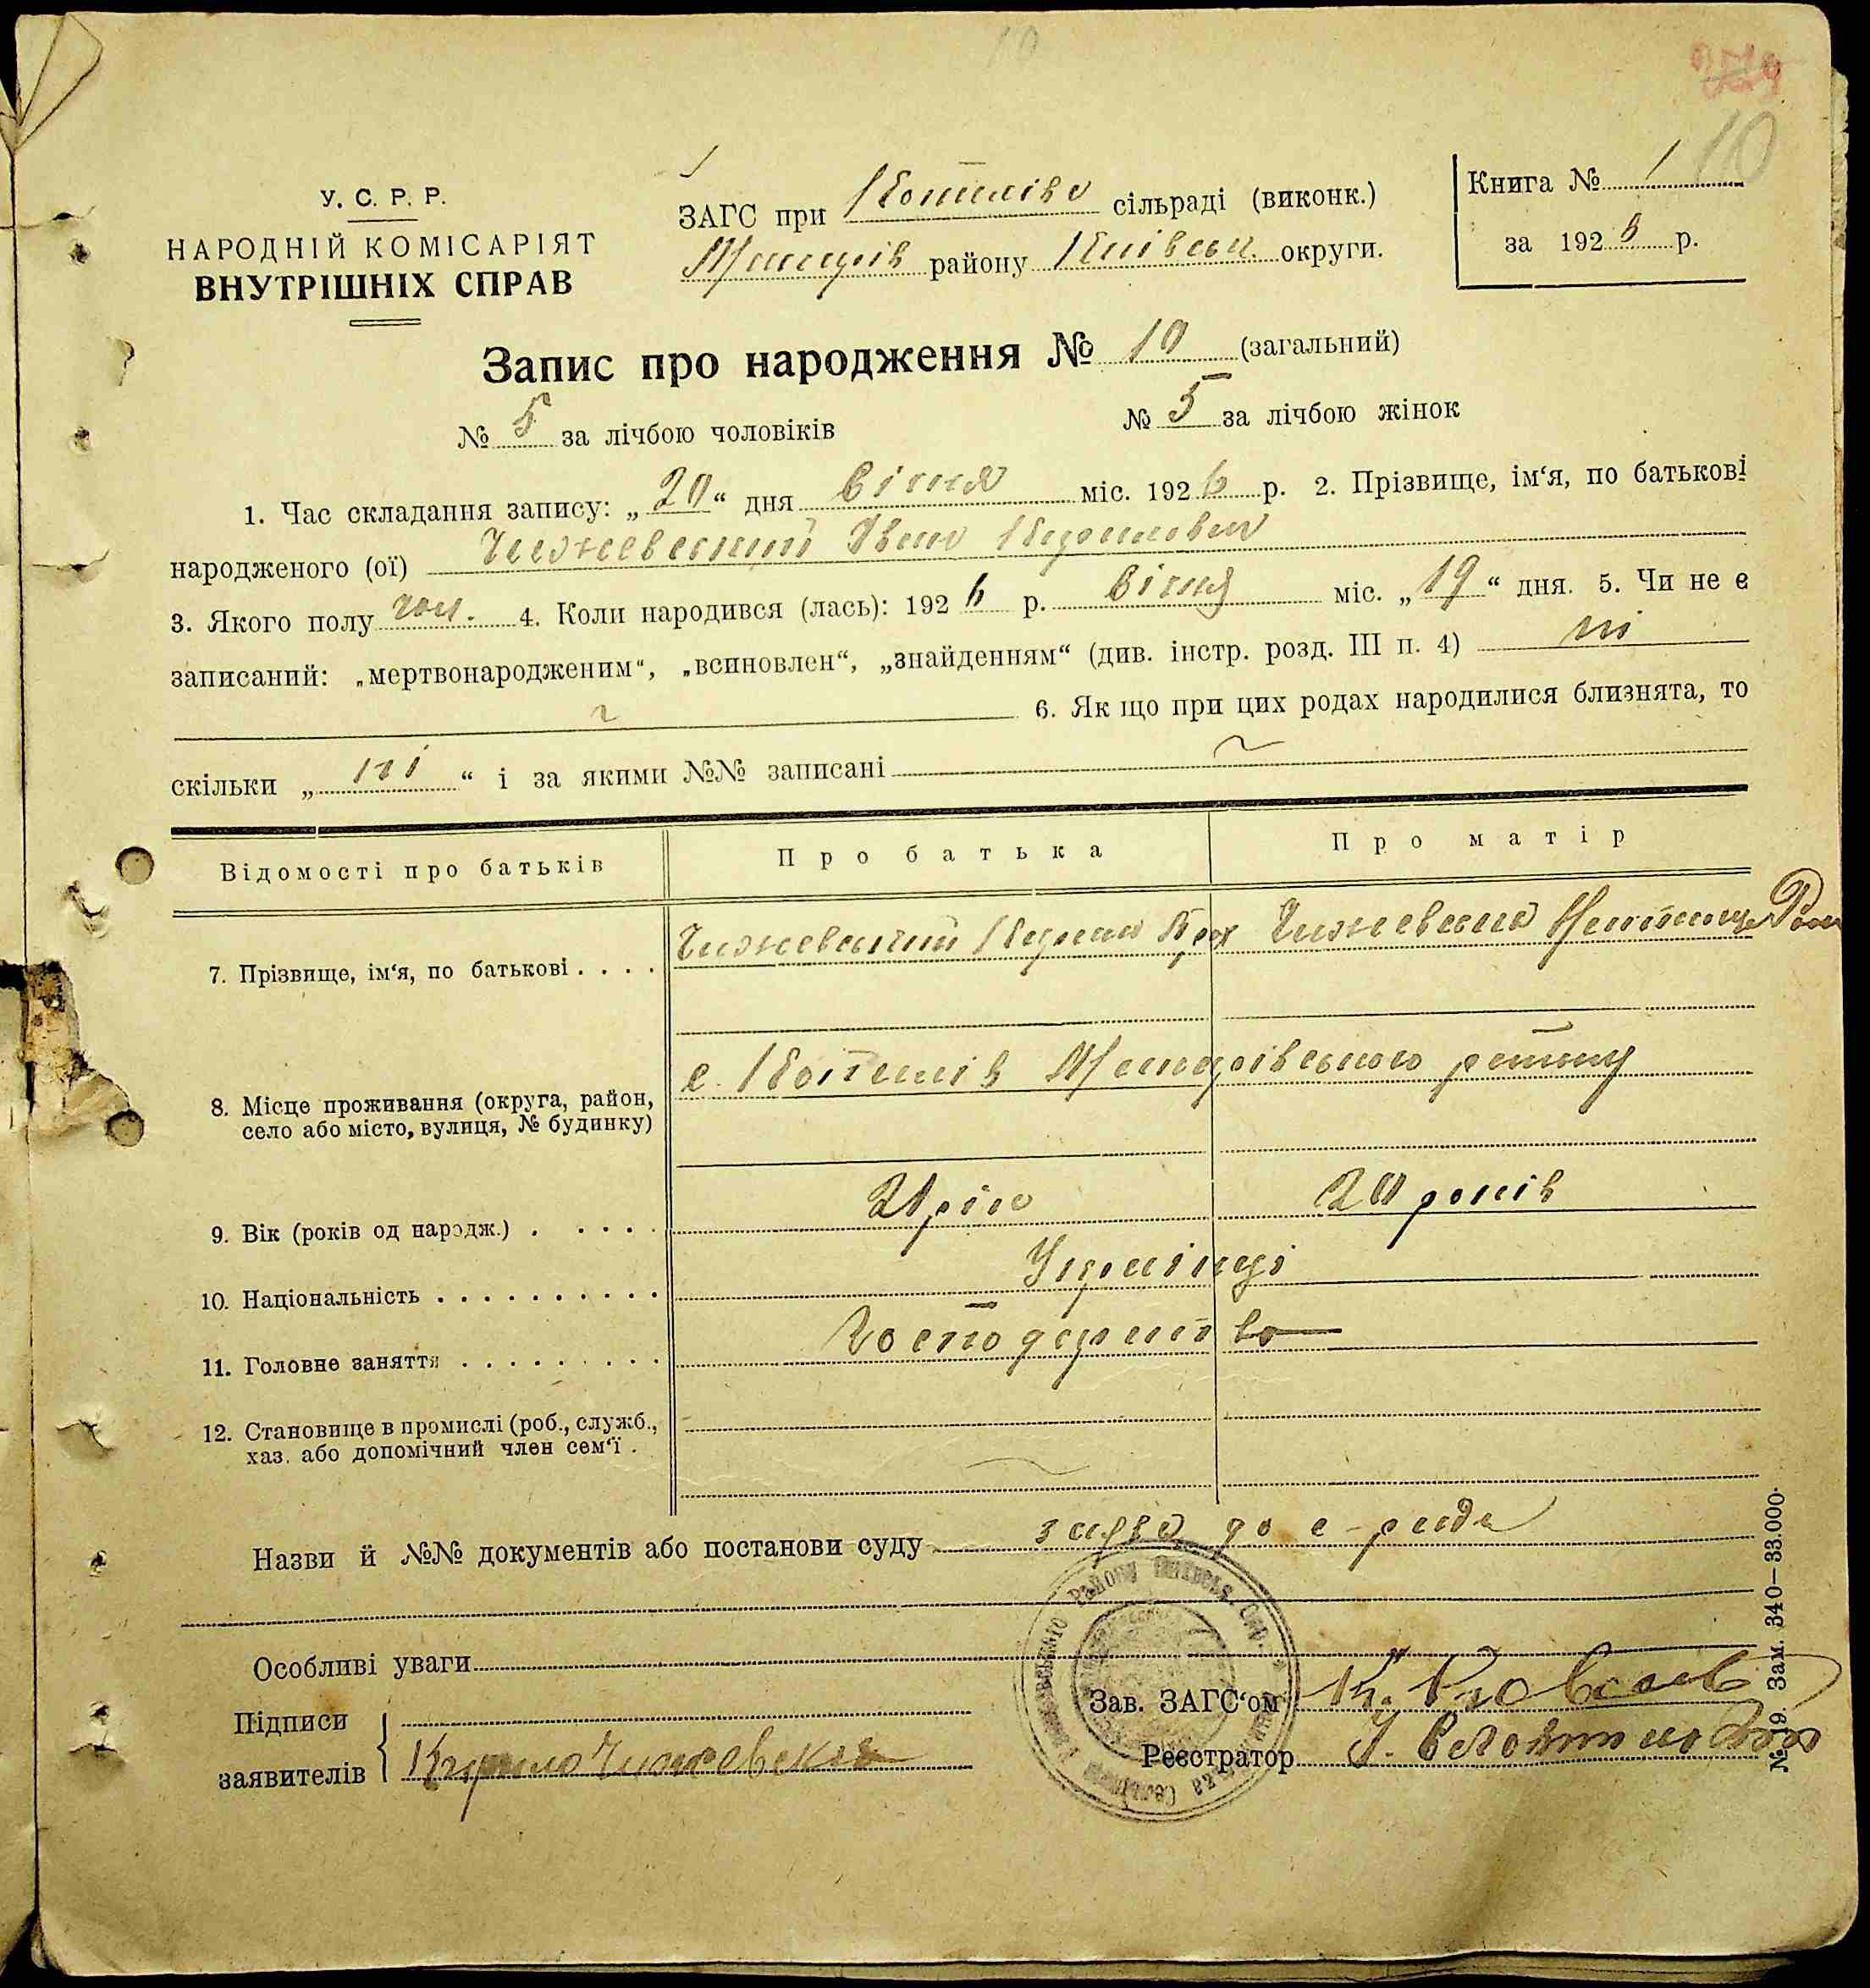 10
У. С. Р. Р.
НАРОДНІЙ КОМІСАРІЯТ
ВНУТРІШНІХ СПРАВ
ЗАГС при сільраді (виконк.)
району Київськ. округи.
Книга № 1 10
за 1926 р.
Запис про народження № 10 (загальний)
№ 5 за лічбою чоловіків № 5 за лічбою жінок
1. Час складання запису: „20“ дня січня міс. 1926 р. 2. Прізвище, ім‘я, по батькові
народженого (ої) Чижевський Іван Кирилович
3. Якого полу чол. 4. Коли народився (лась): 1926 р. січня міс. „19“ дня. 5. Чи не є
записаний: „мертвонародженим“, „всиновлен“, „знайденням“ (див. інстр. розд. III п. 4) ні
6. Як що при цих родах народилися близнята, то
скільки „ні“ і за якими №№ записані
Відомості про батьків Про батька Про матір
7. Прізвище, ім‘я, по батькові . . . . Чижевський Кирило Чижевська
8. Місце проживання (округа, район,
село або місто, вулиця, № будинку)
с. району
9. Вік (років од народж.) . . . . . 21 рік 20 років
10. Національність . . . . . . . . . . Українці
11. Головне заняття . . . . . . . . . Господарство
12. Становище в промислі (роб., служб.,
хаз. або допомічний член сем‘ї .
Назви й №№ документів або постанови суду заява до с-ради
Особливі уваги
Підписи
заявителів Кирило Чижевский
Зав. ЗАГС‘ом
Реєстратор
№ 19. Зам. 340—33.000.